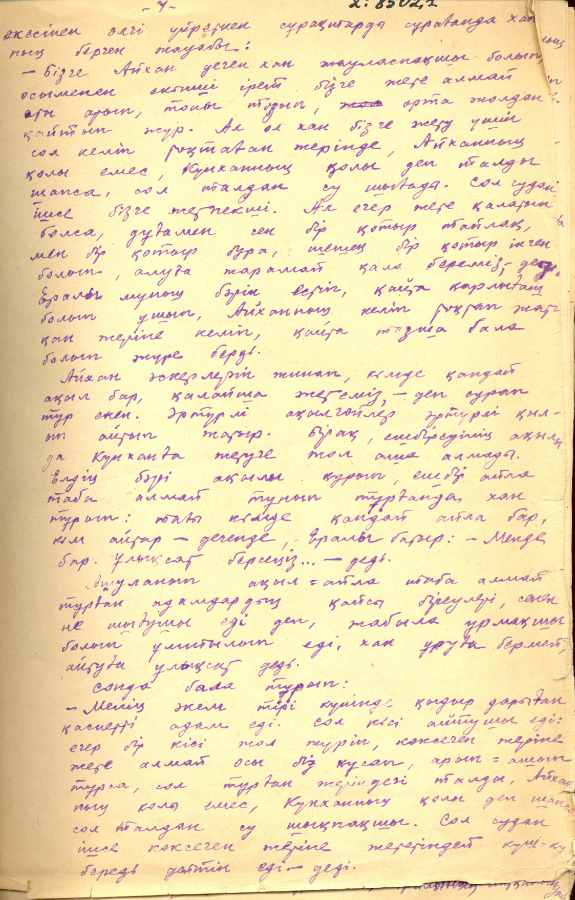 - 4 -
2: 83021
әкесінен әлгі үйреткен сұрақтарды сұрағанда хан
ның берген жауабы:
– Бізге Айхан деген хан жауласпақшы болып,
осыменен екіншіірет бізге жете алмай
аты арып, тоны тозып, орта жолдан
қайтып жүр. Ал ол хан бізге жету үшін
сол келіп тоқтаған жерінде, Айханның
қолы емес, Күнханның қолы деп талды
шапса, сол талдан су шығады. Сол судан
ішсе бізге жетпекші. Ал егер жете қалатын
болса, дұғамен сен бір қотыр тайлақ,
мен бір қотыр бура, шешең бір қотыр інген
болып, алуға жарамай қала береміз, – деді.
Ералы мұның бәрін естіп, қайта қарлығаш
болып ұшып, Айханның келіп тоқтап жат
қан жеріне келіп, қайта тазша бала
болып жүре берді.
Айхан әскерлерін жинап, кімде қандай
ақыл бар, қалайша жетеміз, – деп сұрап
тұр екен. Әртүрлі ақылгөйлер әртүрлі қыл-
ып айтып жатыр. Бірақ, ешбіреуінің ақылы
да Күнханға жетуге жол аша алмады.
Елдің бәрі ақылы құрып, ешбір айла
таба алмай тұнып тұрғанда, хан
тұрып: тағы кімде қандай айла бар,
кім айтар – дегенде, Ералы батыр: – Менде
бар. Ұлықсат берсеңіз... – деді.
Ашуланып ақыл = айла таба алмай
тұрған адамдардың қайсы біреулері, сенен
не шығушы еді деп, жабыла ұрмақшы
болып ұмтылып еді, хан ұруға бермей,
айтуға ұлықсат деді.
Сонда бала тұрып:
– Менің әкем тірі күнінде қыдыр дарыған
қасиетті адам еді. Сол кісі айтушы еді:
егер бір кісі жол жүріп, көксеген жеріне
жете алмай осы біз құсап, арып = ашып
тұрса, сол тұрған жеріндегі талды, Айхан
ның қолы емес, Күнханның қолы деп шапса
сол талдан су шықпақшы. Сол судан
ішсе көксеген жеріне жететіндей күш-қу
береді дейтін еді – деді.